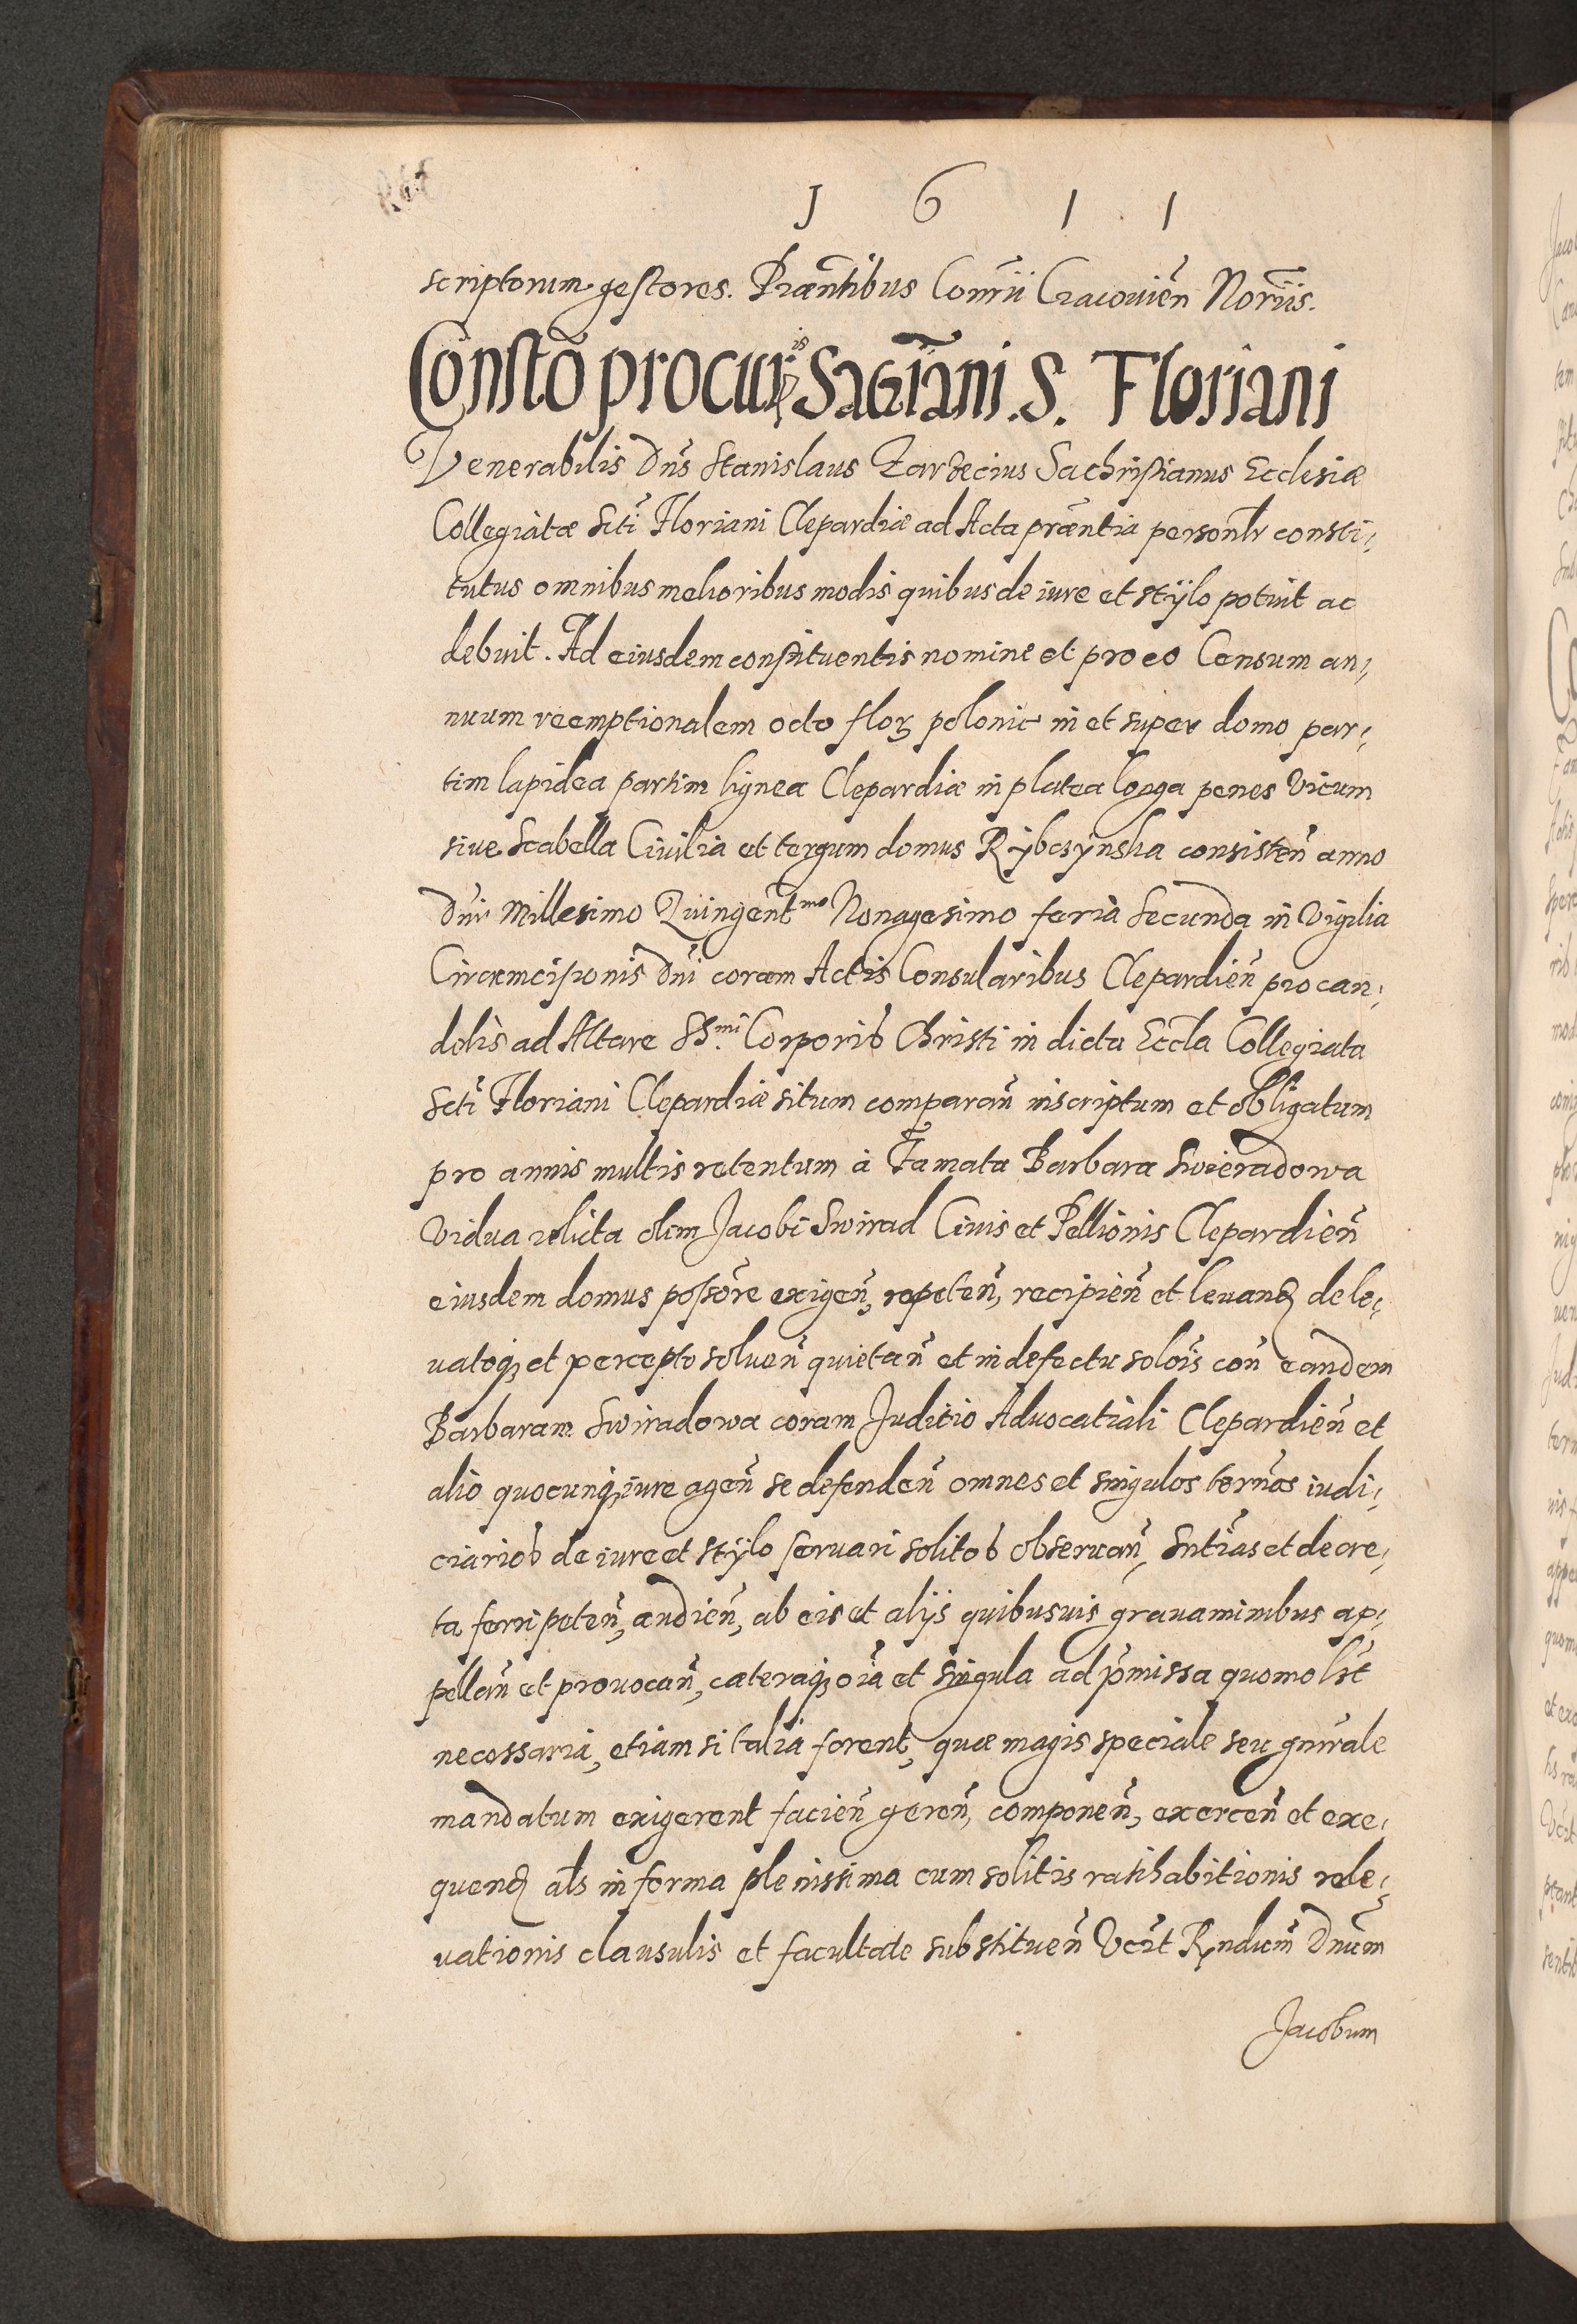 1 6 1 1
scriptorum gestores. Præñtibus Conrii Cracovieñ Noriis.
Constõ procuris Sacriani. S. Floriani
Venerabilis Dñs Stanislaus Zardecius Sachristianus Ecclesiæ
Collegiatæ Scti Floriani Clepardiæ ad Acta præntia personlr consti,
tutus omnibus melioribus modis quibus de iure et stÿlo potuit ac
debuit. Ad eiusdem constituentis nomine et pro eo Censum an,
nuum reemptionalem octo floꝝ polonic in et super domo par,
tim lapidea partim lignea Clepardiæ in platea longa penes Vicum
sive Scabella Civilia et tergum domus Rÿbczÿnska consisteñ anno
Dñi Millesimo Quingentmo Nonagesimo feria Secunda in Vigilia
Circumcisionis Dñi coram Actis Consularibus Clepardieñ pro can,
delis ad Altare SSmi Corporis Christi in dicta Eccla Collegiata
Scti Floriani Clepardiæ situm comparañ inscriptum et obligatum
pro annis multis retentum à Famata Barbara Swieradowa
Vidua relicta olim Jacobi Swirad Civis et Pellionis Clepardieñ
eiusdem domus possore exigeñ, repeteñ, recipieñ et levanđ de le,
vatoqꝫ et percepto solueñ quietañ et in defectu solois coñ eandem
Barbaram Swiradowa coram Juditio Advocatiali Clepardieñ et
alio quocunqꝫ iure ageñ se defendeñ omnes et singulos termos iudi,
ciarios de iure et stÿlo servari solitos observañ, Sntias et decre,
ta ferri peteñ, audieñ, ab eis et alijs quibusvis gravaminibus ap,
pellañ et provocañ, cæteraqꝫ oia et singula ad pmissa quomolbt
necessaria, etiam si talia forent, quæ magis speciale seu gnrale
mandatum exigerent facieñ gereñ, componeñ, exerceñ et exe,
quenđ als in forma plenissima cum solitis ratihabitionis rele,
vationis clausulis et facultate substitueñ Vcrt Rndum Dnum
Jacobum